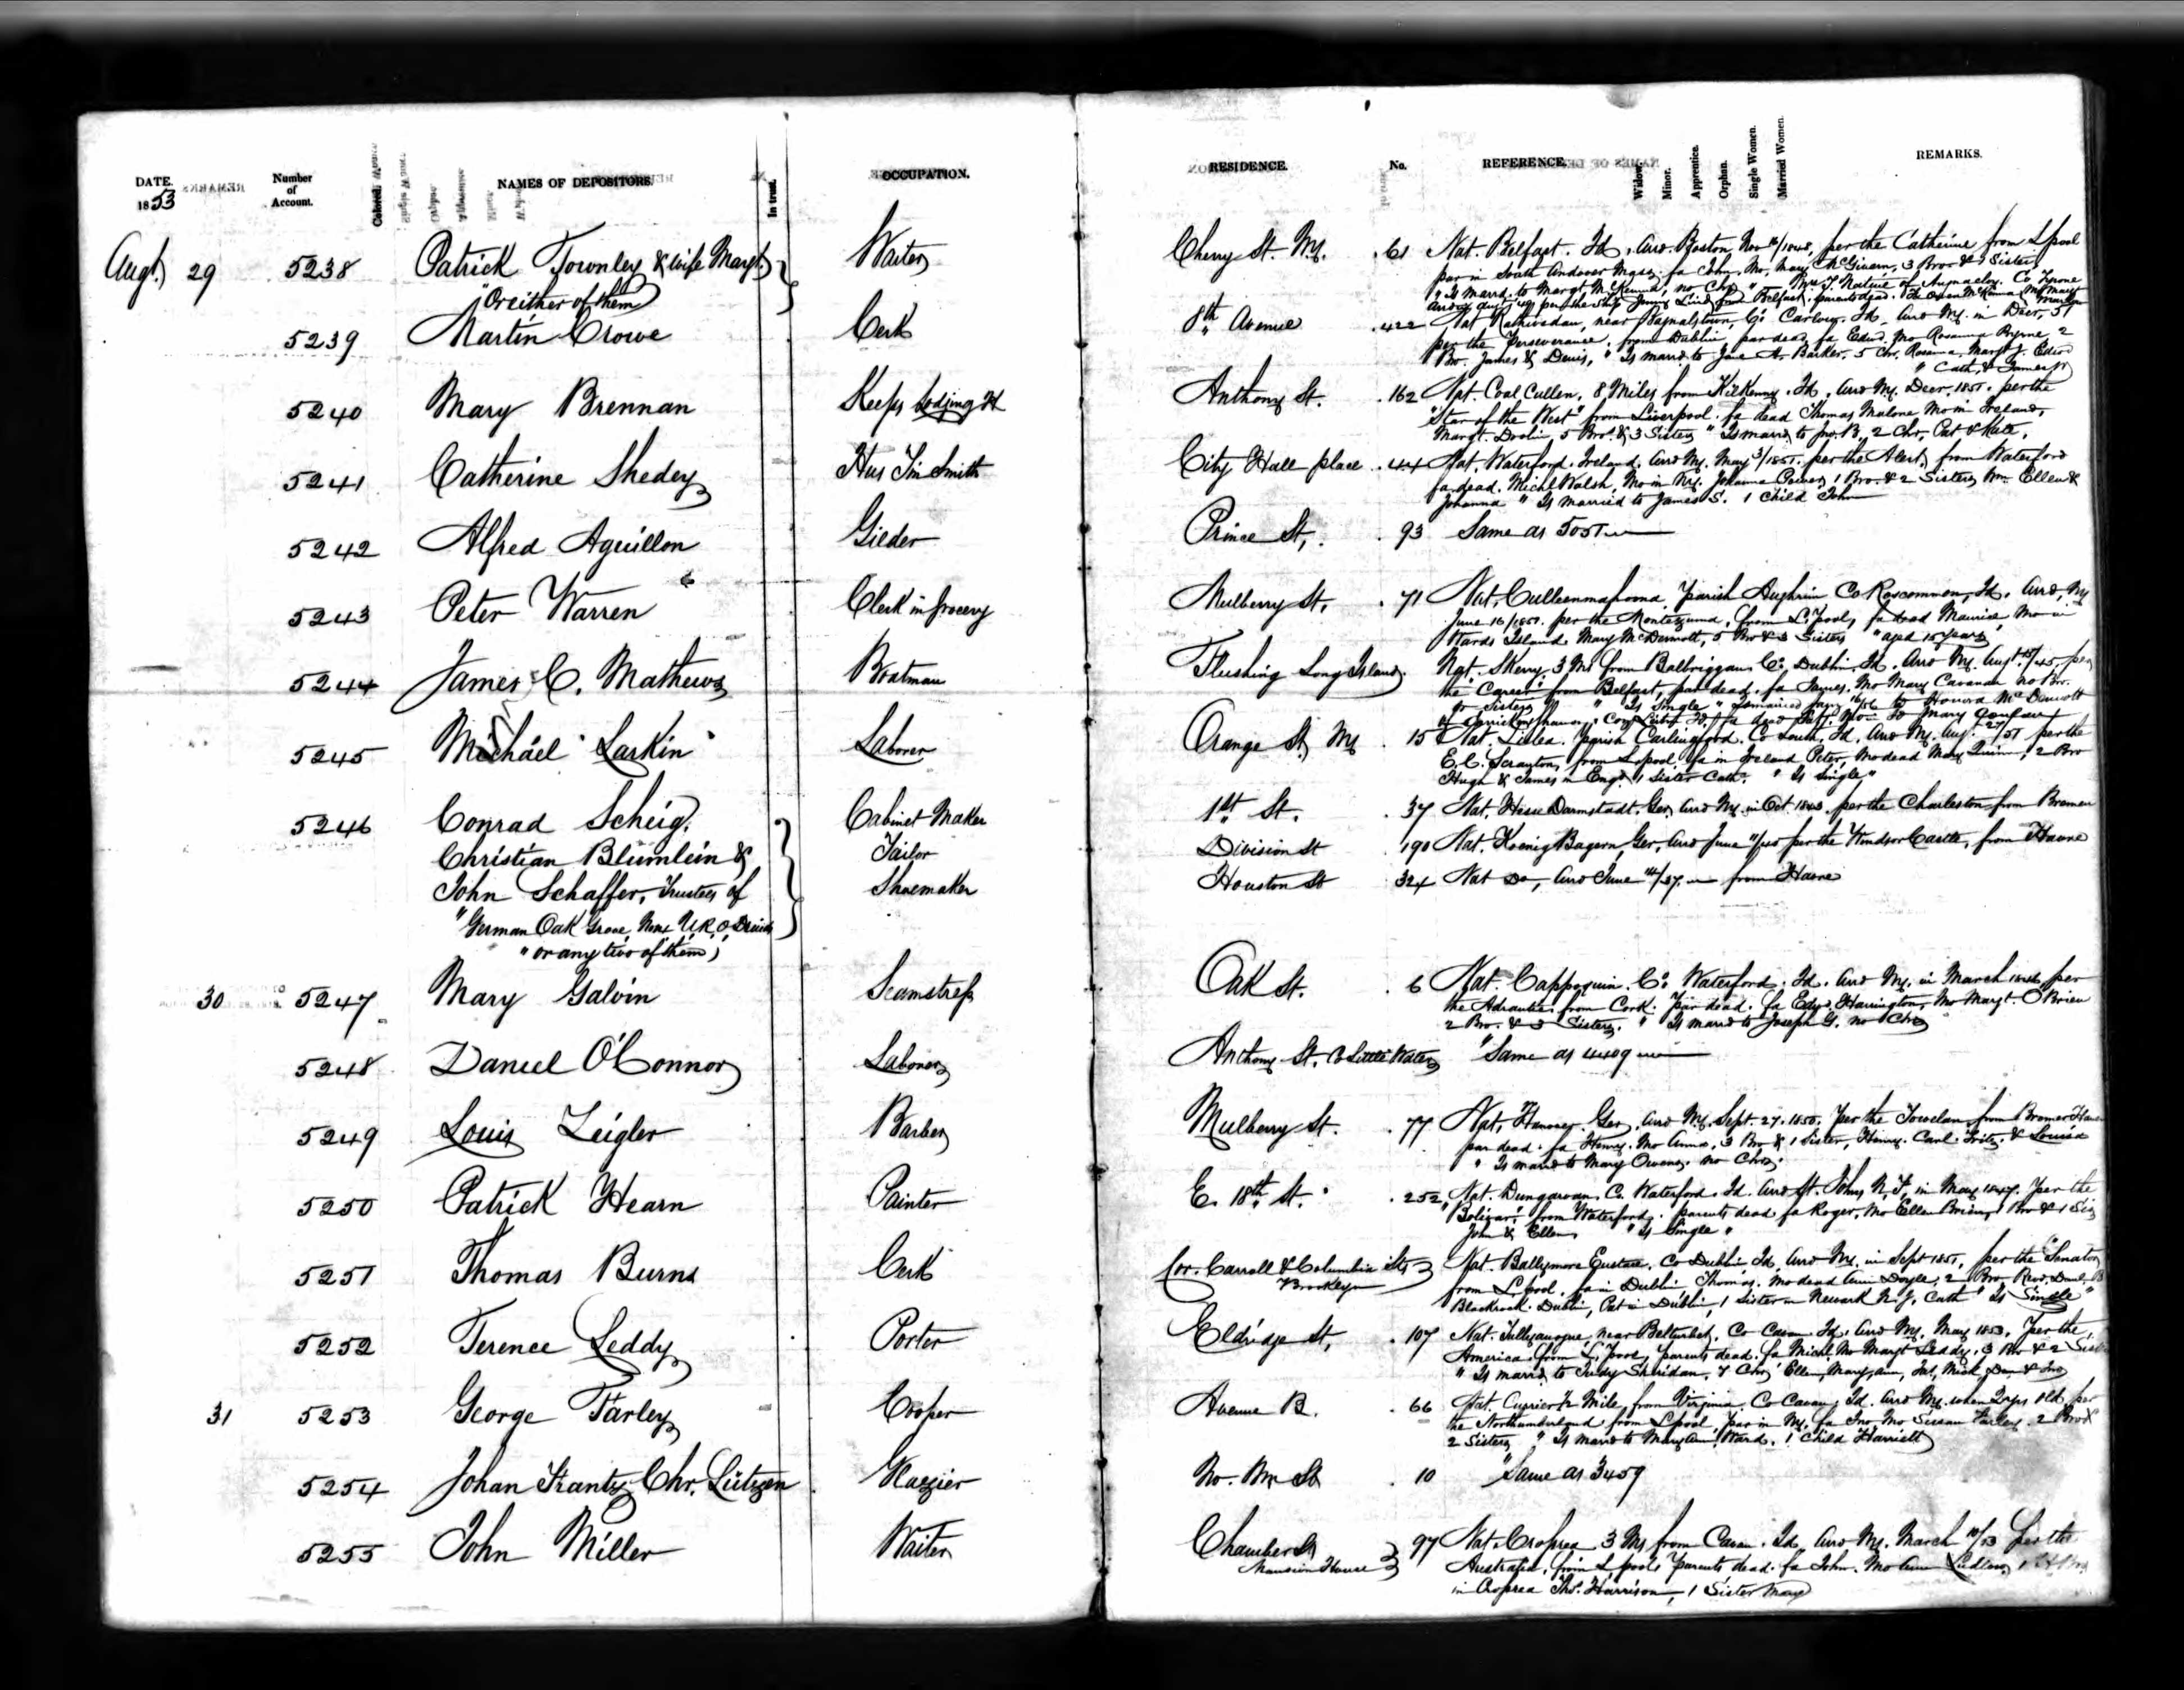 DATE. Number of Account. NAMES OF DEPOSITORS. In trust. OCCUPATION. RESIDENCE. No. REFERENCE. Widow. Minor. Apprentice. Orphan. Single Women. Married Women. REMARKS.
1853
Augt. 29 5238 Patrick Townley & wife Margt. Waiter Cherry St. Ny. 61 Nat. Belfast. Id. Arrd. Boston Nov 16/1848, per the Catherine from Lpool
par in South Andover Mass. fa John, Mo. Mary McGivern, 3 Bros & 2 Sisters
"Or either of them "Is marrd. to Margt. McKenna, no Chr. " Mrs T. Native of Augnacloy. Co Tyrone
5239 Martin Crowe Clerk 8th Avenue 422 Nat. near Bagnalstown, Co. Carlow. Id. Arrd Ny. in Decr. 51
per the Perseverance, from Dublin par dead, fa Edwd. Mo Rosanna Byrne, 2
Bro. James & Denis, " Is marrd to Jane A. Barker. 5 Chr. Rosanna, Margt J. Edwd
" Cath, & James
5240 Mary Brennan Keeps Lodging H Anthony St. 162 Nat. Coal Cullen, 8 Miles from Kilkenny. Id. Arrd Ny. Decr. 1851. per the
"Star of the West" from Liverpool. fa dead Thomas Malone Mo in Ireland,
Margt. Doolin, 5 Bros. & 3 Sisters " Is marrd to Jno. B. 2 Chr, Pat & Kate.
5241 Catherine Shedey Hus Tin Smith City Hall place 44 Nat. Waterford. Ireland. Arrd Ny. May 3/1851. per the Alert, from Waterford
fa dead. Michl Walsh, Mo in Ny. Johanna Power, 1 Bro. & 2 Sisters Wm. Ellen &
Johanna " Is married to James S. 1 Child John
5242 Alfred Aguillon Gilder Prince St. 93 Same as 5051
5243 Peter Warren Clerk in Grocery Mulberry St. 71 Nat. Parish Aughrim Co Roscommon, Id. Arrd. Ny
June 16/1851. per the Montezuma, from L'Pool, fa dead Maurice, Mo in
Wards Island. Mary McDermott, 5 Bro & 3 Sisters "aged 15 years
5244 James C. Mathews Boatman Flushing Long Island. Nat. Skerry. 3 Ms from Balbriggan Co. Dublin, Id. Arrd Ny. Augt. 15/45, per
the Career from Belfast, par dead. fa James. Mo Mary Cavanan no Bro.
or Sisters " Is Single " to Honora McDermott
5245 Michael Larkin Laborer Orange St. Ny 15 Nat. Lislea. Parish Carlingford. Co Louth, Id, Arrd Ny. Aug. 27/51 per the
E. C. Scranton, from Lpool. fa in Ireland Peter, Mo dead Mary Quinn, 2 Bro
Hugh & James in Engd. 1 Sister Cath. " Is Single "
5246 Conrad Scheig. Cabinet Maker 1st St. 37 Nat. Hesse Darmstadt. Ger. Arrd Ny. in Oct 1843. per the Charleston from Bremen
Christian Blümlein & Tailor Division St 190 Nat. Koenig Bayern, Ger, Arrd June 11/40 per the Windsor Castle, from Havre
John Schaffer, Trustees of Shoemaker Houston St 324 Nat Do, Arrd June 14/37. from Havre
"German Oak Grove U. A. O. Druids
" or any two of them)
30 5247 Mary Galvin Seamstress Oak St. 6 Nat. Cappoquin. Co. Waterford. Id. Arrd Ny. in March 1846 per
the from Cork. Par dead. fa Edwd. Harrington, Mo Margt. O'Brien
2 Bro. & 3 Sisters. " Is marrd to Joseph G. no Chr.
5248 Daniel O'Connor Laborer Anthony St. Co Little Water "Same as 4409
5249 Louis Zeigler Barber Mulberry St. 77 Nat. Hanover. Ger. Arrd Ny. Sept. 27. 1850. per the from Bremer Haven
par dead. fa Henry. Mo Anna. 3 Bro. & 1 Sister, Henry. Carl. Fritz. & Louisa
" Is marrd to Mary Owens. no Chr.
5250 Patrick Hearn Painter E. 18th St. 252 Nat. Dungarvan. Co. Waterford. Id. Arrd St. Johns N. F. in May 1847. per the
"Bolivar", from Waterford. parents dead fa Roger, Mo Ellen Brien, 1 Bro & 1 Sis
John & Ellen, " Is Single "
5251 Thomas Burns Clerk Cor. Carroll & Columbia Sts Nat. Ballymore Eustace. Co Dublin, Id. Arrd Ny. in Sept 1851, per the "Senator
Brooklyn from L. pool. fa in Dublin, Thomas. Mo dead Ann Doyle, 2 Bro. Revd. Danl. B
Blackrock. Dublin, Pat in Dublin, 1 Sister in Newark N. J. Cath " Is Single "
5252 Terence Leddy Porter Eldridge St, 107 Nat. near Belturbet. Co Cavan. Id. Arrd Ny. May 1853. Per the
America. from L'Pool, parents dead. fa Michl. Mo Margt Leddy. 3 Bro & 2 Sisters
" Is marrd. to Sheridan. 7 Chr. Ellen, Mary, Ann, Jas, Mick, Dan & Jno
31 5253 George Farley Cooper Avenue B. 66 Nat. 2 Mile, from Virginia. Co Cavan, Id. Arrd Ny. when 2 yrs old, per
the Northumberland from L pool, par in Ny. fa Jno. Mo Susan Farley. 2 Bro &
2 Sisters " Is marrd to Mary Ann Ward. 1 Child Harriett
5254 Johan Frantz Chr. Lützen Glazier No. Mr St 10 "Same as 3459
5255 John Miller Waiter Chamber St 97 Nat. Croprea 3 Ms from Cavan. Id. Arrd Ny. March 10/53 per the
Mansion House Australia, from L pool Parents dead. fa John. Mo Ann Ludlow, 1
in Croprea Thos. Harrison, 1 Sister Mary